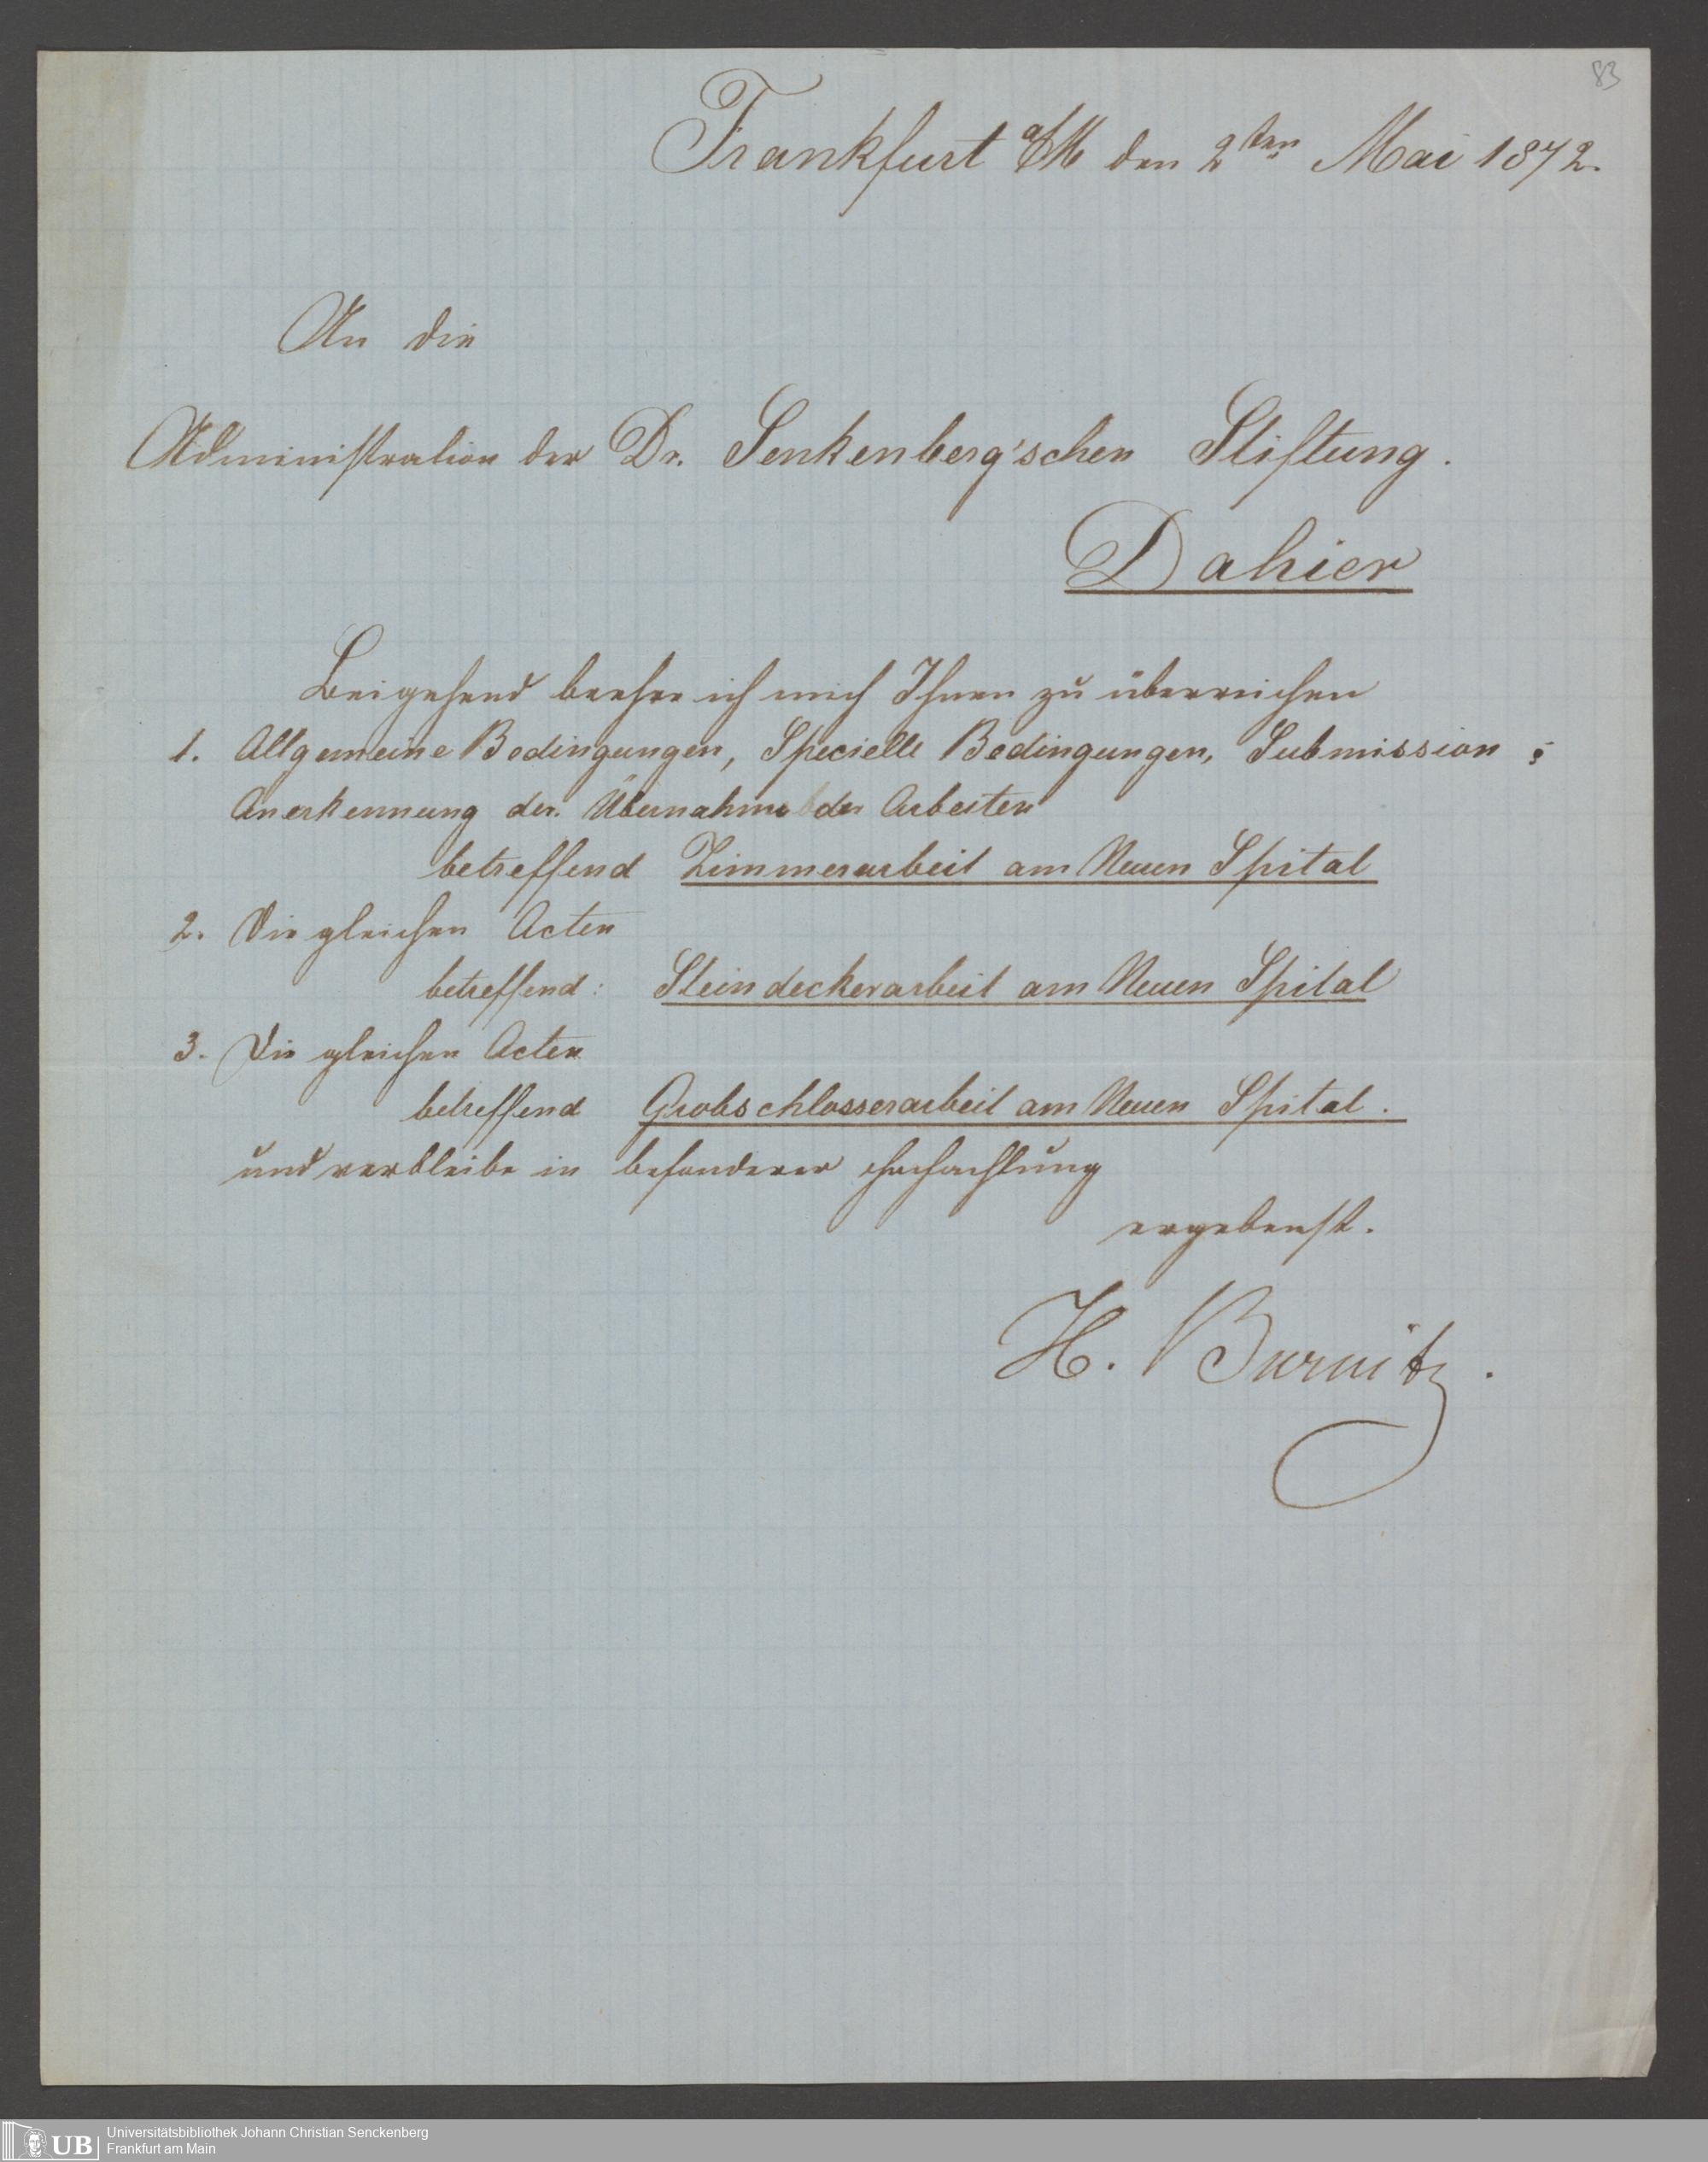 83
Frankfurt a/M den 2ten Mai 1872.
An die
Administration der Dr. Senkenberg'schen Stiftung.
Dahier
Beigehend beehre ich mich Ihnen zu überreichen
1. Allgemeine Bedingungen, Specielle Bedingungen, Submission &
Anerkennung der Übernahme der Arbeiten
betreffend Zimmerarbeit am Neuen Spital
2. Die gleichen Acten
betreffend: Steindeckerarbeit am Neuen Spital
3. Die gleichen Acten
betreffend Grobschlosserarbeit am Neuen Spital.
und verbleibe in besonderer Hochachtung
ergebenst.
H. Burnitz.
UB
Universitätsbibliothek Johann Christian Senckenberg
Frankfurt am Main